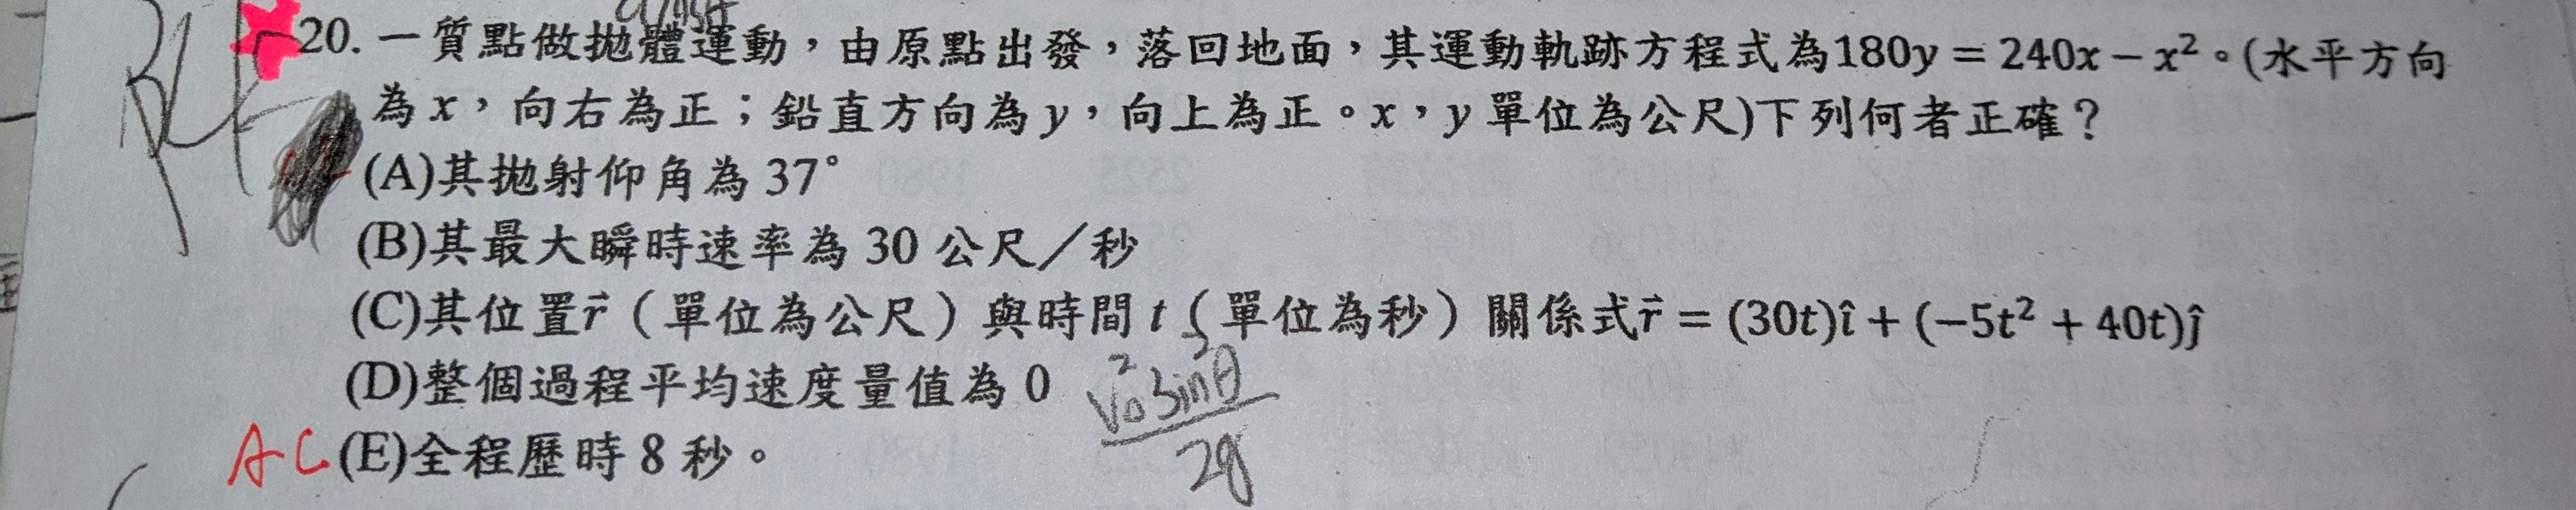 20. 一質點做拋體運動，由原點出發，落回地面，其運動軌跡方程式為180y = 240x − x²。(水平方向
為 x，向右為正；鉛直方向為 y，向上為正。x，y 單位為公尺)下列何者正確？
(A)其拋射仰角為 37°
(B)其最大瞬時速率為 30 公尺／秒
(C)其位置r⃗（單位為公尺）與時間 t（單位為秒）關係式r⃗ = (30t)î + (−5t² + 40t)ĵ
(D)整個過程平均速度量值為 0
V₀²sin²θ
2g
AC (E)全程歷時 8 秒。